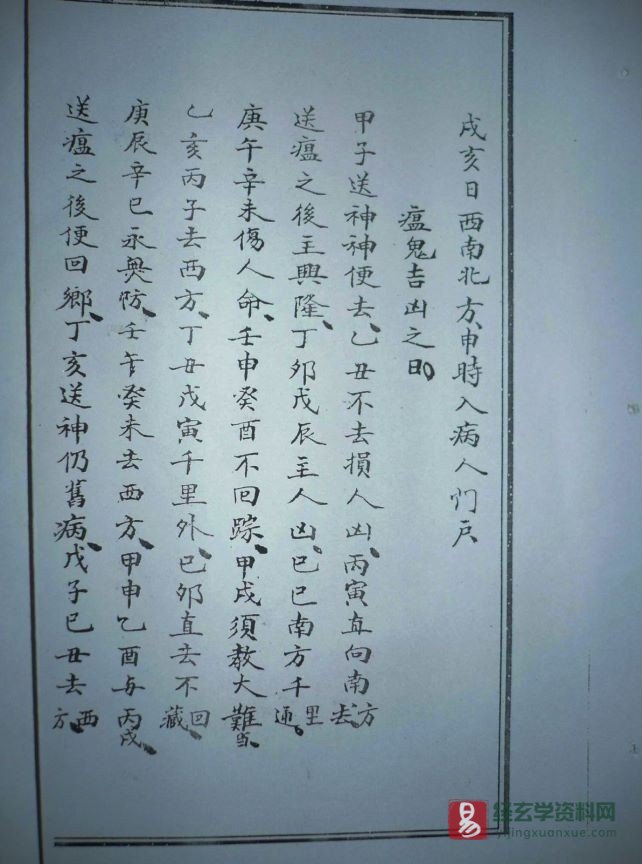 戌亥日西南北方、申時入病人门户
瘟鬼吉凶之日
甲子送神神便去、乙丑不去損人凶、丙寅直向南方去、
送瘟之後主興隆、丁夘戊辰主人凶、巳巳南方千里通。
庚午辛未傷人命、壬申癸酉不回踪、甲戌須教大難当、
乙亥丙子去西方、丁丑戊寅千里外、巳夘直去不回藏、
庚辰辛巳永無妨、壬午癸未去西方、甲申乙酉与丙戌、
送瘟之後便回鄉、丁亥送神仍舊病、戊子巳丑去西方、
易 经玄学资料网
yijingxuanxue.com